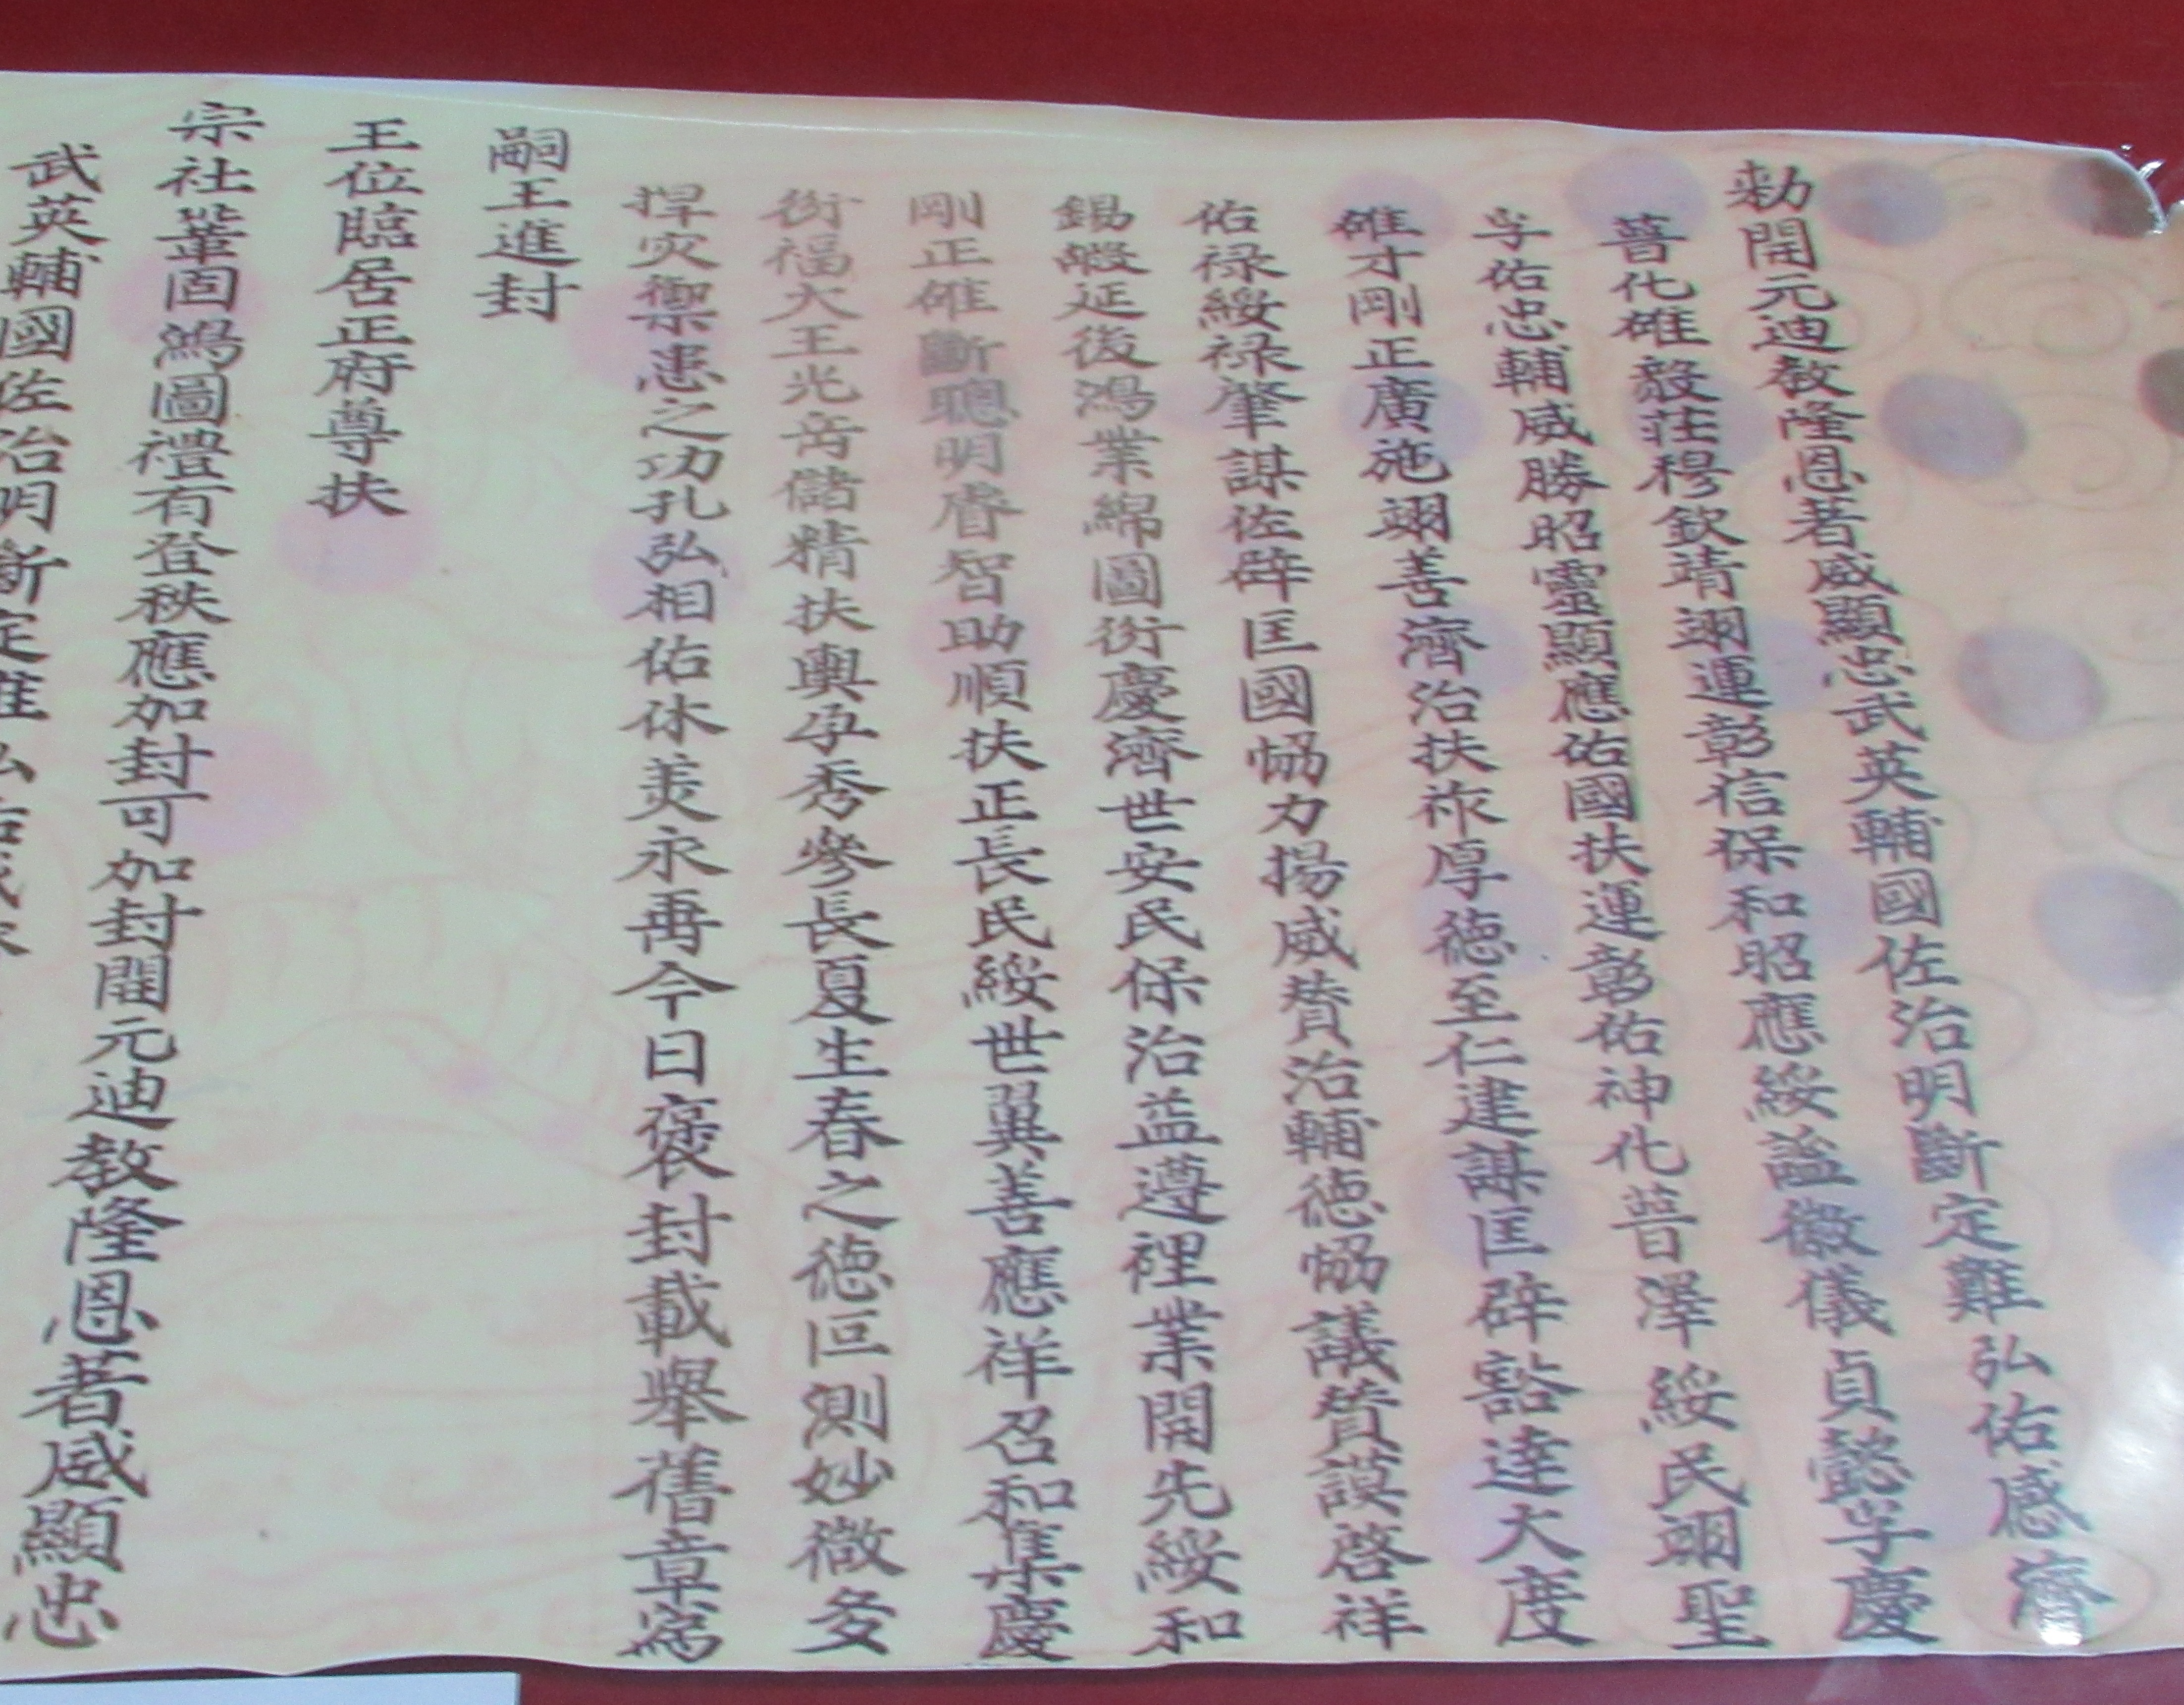 敕開元迪教隆恩著威顯忠武英輔國佐治明斷定難弘佑感濟
普化雄毅莊穆欽靖翊運彰信保和昭應綏謐徽儀貞懿孚慶
孚佑忠輔威勝昭靈顯應佑國扶運彰佑神化普澤綏民翊聖
雄才剛正廣施翊善濟治扶祚厚德至仁建謀匡辟豁達大度
佑祿綏祿肇謀佐辟匡國恊力揚威贊治輔德恊議贊謨啓祥
錫嘏延後鴻業綿圖衍慶濟世安民保治益遵裡業開先綏和
剛正雄斷聰明睿智助順扶正長民綏世翼善應祥召和集慶
衍福大王光岳儲精扶輿孕秀參長夏生春之德叵測妙微多
捍灾禦患之功孔弘相佑休羙永再今日褒封載舉舊章爲
嗣王進封
王位臨居正府尊扶
宗社鞏固鴻圖禮有登秩應加封可加封開元迪教隆恩著威顯忠
武英輔國佐治明斷定難弘佑感